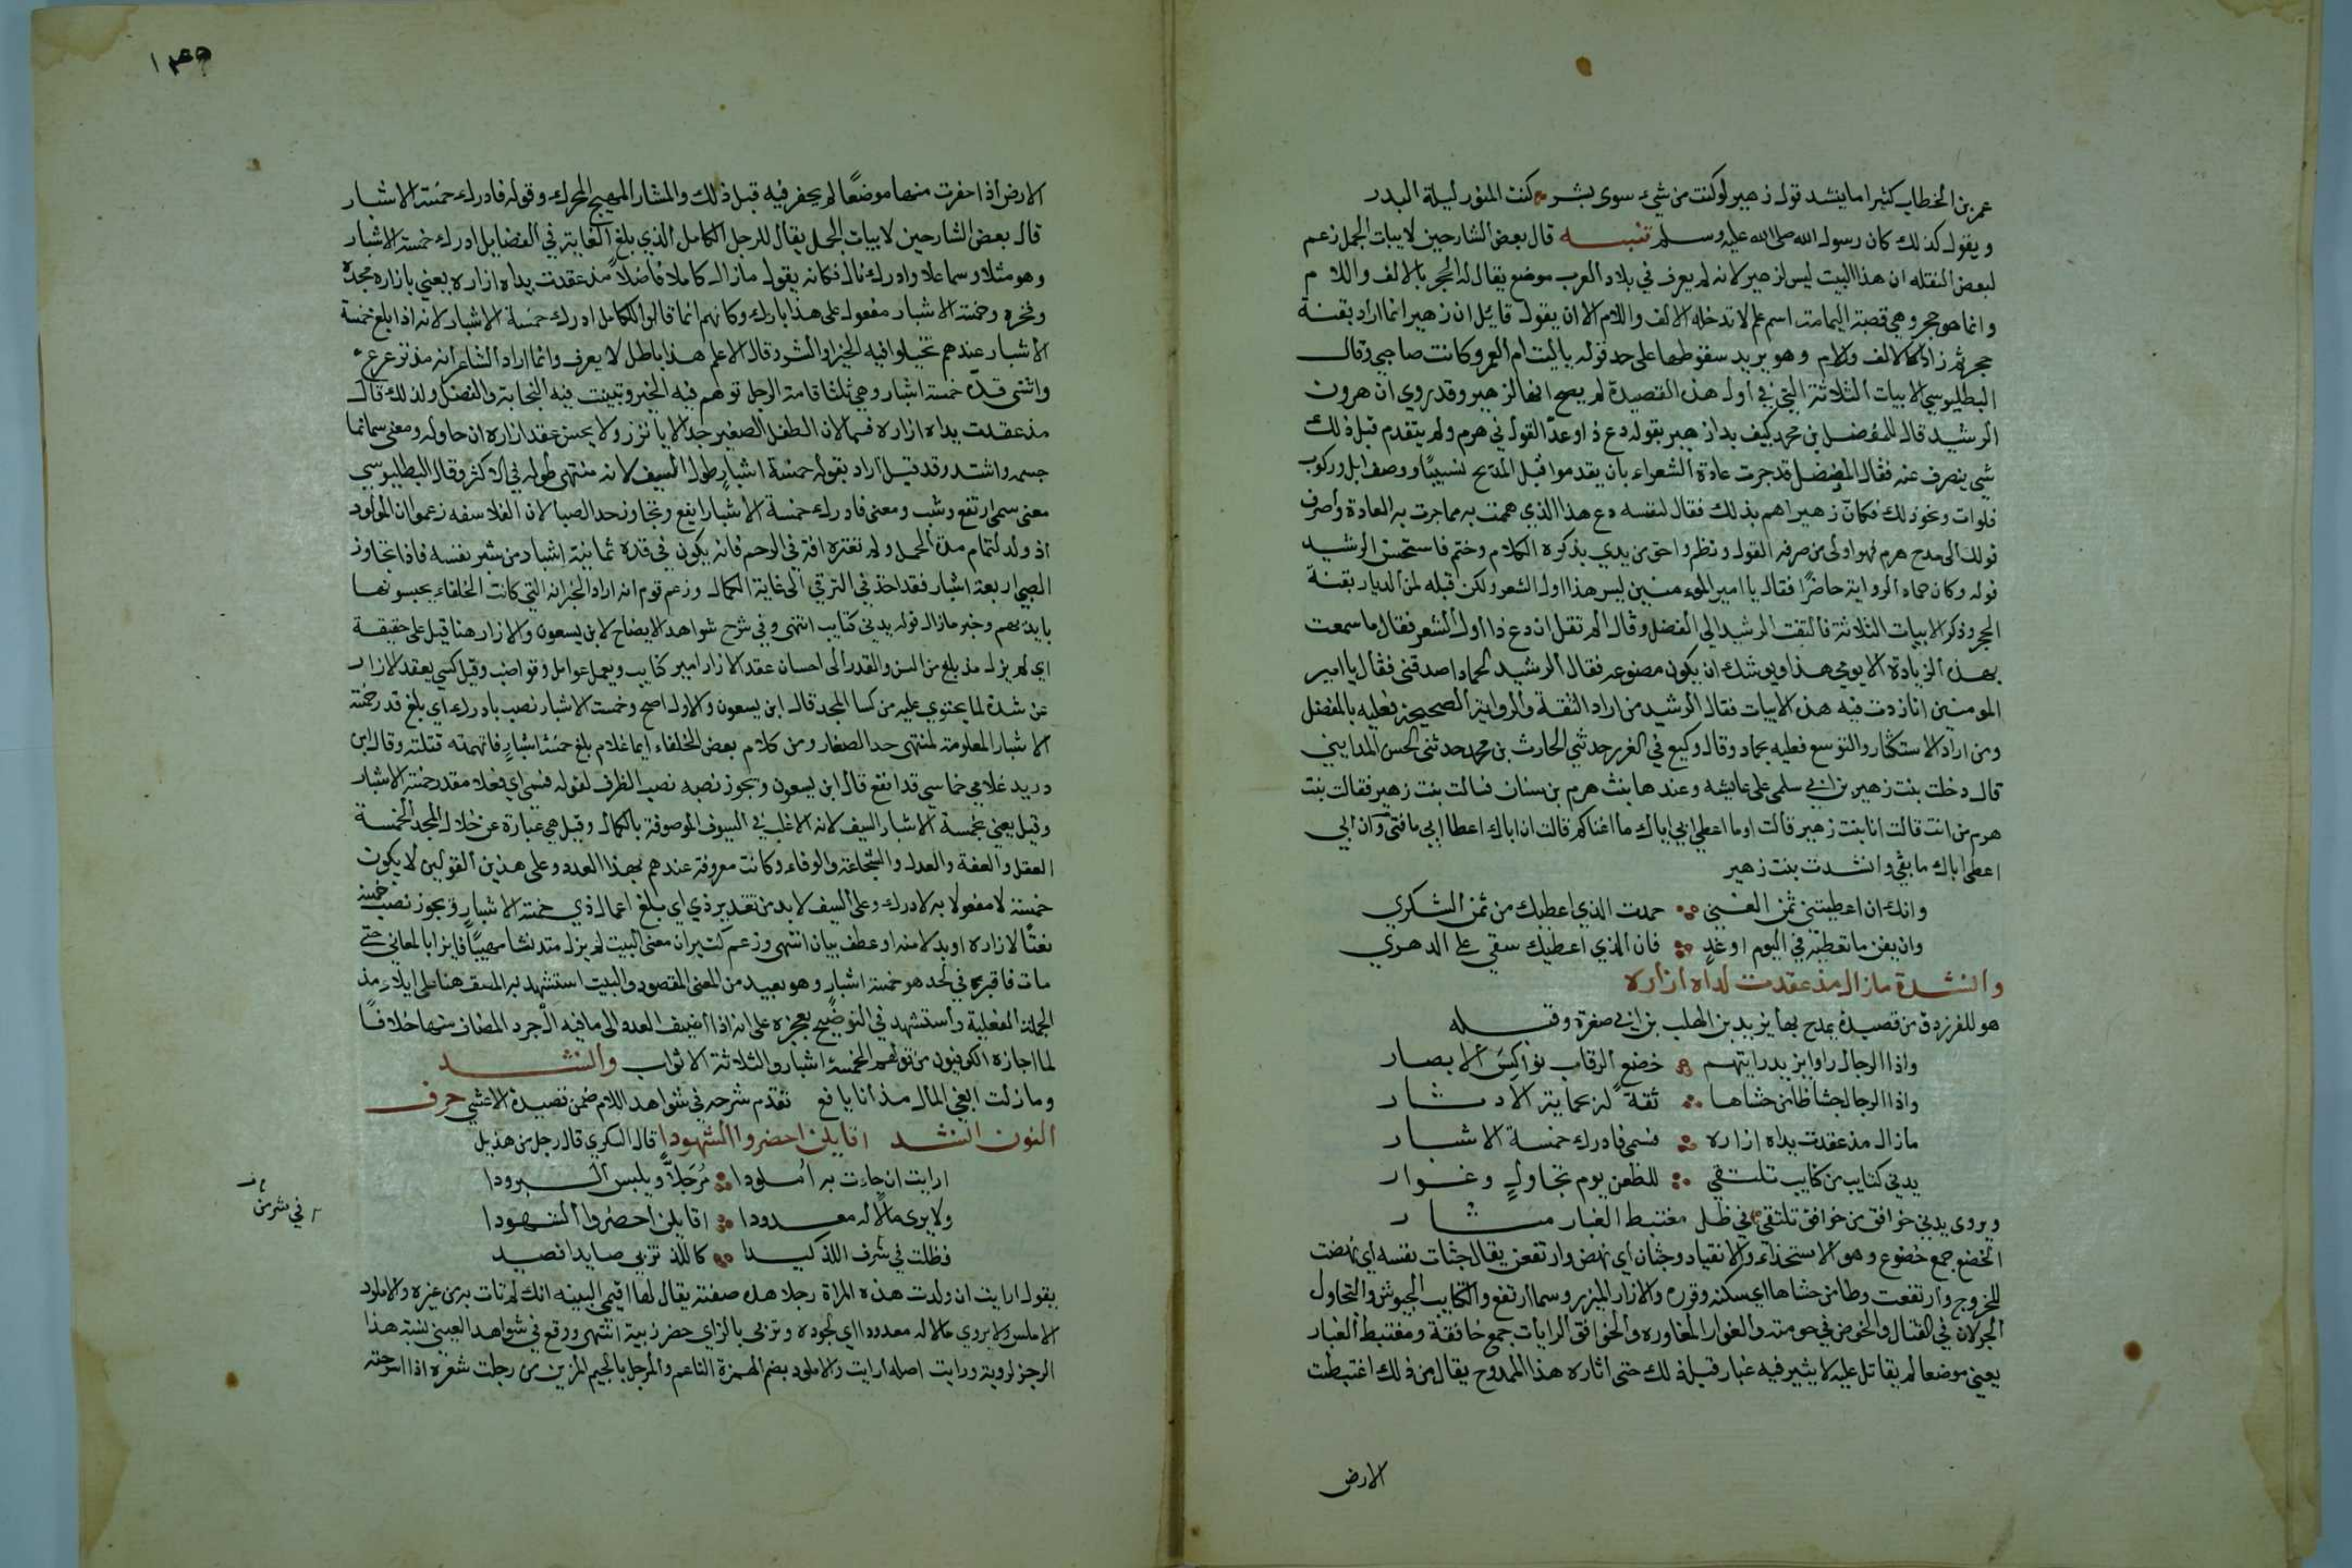 عمر بن الخطاب كثيرا ما ينشد قول زهير لو كنت من شيء سوى بشر كنت المنور ليلة البدر
ويقول كذلك كان رسول الله صلى الله عليه وسلم تنبيه قال بعض الشارحين لابيات الجمل زعم
بعض النقله ان هذا البيت ليس لزهير لانه لم يعرف في بلاد العرب موضع يقال له الحجر بالالف واللام
وانما هو حجر وهي قصبة اليمامة اسم علم لا تدخله الالف واللام الا ان يقول قائل ان زهيرا انما اراد بقنة
حجر ثم زاد الالف واللام وهو يريد سقوطها على حد قوله ياليت ام العمرو كانت صاحبي وقال
البطليوسي الابيات الثلاثة التي في اول هذه القصيدة لم يصح انها لزهير وقد روي ان هرون
الرشيد قال للمفضل بن محمد كيف بدا زهير بقوله دع ذا وعد القول في هرم ولم يتقدم قبل ذلك
شي ينصرف عنه فقال المفضل قد جرت عادة الشعراء بان يقدموا قبل المديح نسيبا ووصف ابل وركوب
فلوات ونحو ذلك فكان زهيرا هم بذلك فقال لنفسه دع هذا الذي هممت به مما جرت به العادة واصرف
قولك الى مدح هرم فهو اولى من صرف القول ونظم واحق من بدي بذكره الكلام وختم فاستحسن الرشيد
قوله وكان حماد الرواية حاضرا فقال يا امير المومنين ليس هذا اول الشعر ولكن قبله لمن الديار بقنة
الحجر وذكر الابيات الثلاثة فالتفت الرشيد الى الفضل وقال الم تقل ان دع ذا اول الشعر فقال ما سمعت
بهذه الزيادة الا يومي هذا ويوشك ان يكون مصنوعه فقال الرشيد لحماد اصدقني فقال يا امير
المومنين انا زدت فيه هذه الابيات فقال الرشيد من اراد الثقة والرواية الصحيحة فعليه بالمفضل
ومن اراد الاستكثار والتوسع فعليه بحماد وقال وكيع في الغرر حدثني الحارث بن محمد حدثني الحسن المدايني
قال دخلت بنت زهير بن ابي سلمى على عايشه وعندها بنت هرم بن سنان فسالت بنت زهير فقالت بنت
هرم من انت قالت انا بنت زهير قالت اوما اعطى ابي اباك ما اغناكم قالت ان اباك اعطا ابي ما فني وان ابي
اعطى اباك ما بقي وانشدت بنت زهير
وانك ان اعطيتني ثمن الغنى حمدت الذي اعطيك من ثمن الشكري
وان يفن ما تعطيه في اليوم او غد فان الذي اعطيك يبقى على الدهري
وانشدة ما زال مذ عقدت يداه ازاره
هو للفرزدق من قصيدة يمدح بها يزيد بن المهلب بن ابي صفرة وقبله
واذا الرجال راوا يزيد رايتهم خضع الرقاب نواكس الابصار
ما زال مذ عقدت يداه ازاره فسمى فادرك خمسة الاشبار
يدني كتايب من كتايب تلتقي للطعن يوم تجاول وغوار
ويروى يدني خوافق من خوافق تلتقي في ظل مغتبط الغبار مثار
الخضع جمع خضوع وهو الاستخذاء والانقياد وجشان اي نهض وارتفعن يقال جشات نفسه اي نهضت
للخروج وارتفعت وطامن جشاها اي سكنه وقرره والازار الميزر وسما ارتفع والكتايب الجيوش والتجاول
الجولان في القتال والخوض في حومته والغوار المغاوره والخوافق الرايات جمع خافقة ومغتبط الغبار
يعني موضعا لم يقاتل عليه لا يثير فيه غبار قبل ذلك حتى اثاره هذا الممدوح يقال من ذلك اغتبطت
الارض
١٤٥
الارض اذا حفرت منها موضعا لم يحفر فيه قبل ذلك والمثار المهيج المحرك وقوله فادرك خمسة الاشبار
قال بعض الشارحين لابيات الجمل يقال للرجل الكامل الذي بلغ الغاية في الفضايل ادرك خمسة الاشبار
وهو مثل وسما علا وادرك نال فكانه يقول ما زال كاملا فاضلا مذ عقدت يداه ازاره يعني بازاره مجده
وفخره وخمسة الاشبار مفعول على هذا بادرك وكانهم انما قالوا للكامل ادرك خمسة الاشبار لانه اذا بلغ خمسة
الاشبار عندهم تخيلوا فيه الخير او الشر وقال الاعلم هذا باطل لا يعرف وانما اراد الشاعر انه مذ ترعرع
وانتهى قده خمسة اشبار وهي ثلثا قامة الرجل توهم فيه الخير وتبينت فيه النجابة والفضل ولذلك قال
مذ عقدت يداه ازاره فسما لان الطفل الصغير جدا لا ياتزر ولا يحسن عقد ازاره ان حاوله ومعنى سما نما
جسمه واشتد وقد قيل اراد بقوله خمسة اشبار طول السيف لانه منتهى طوله في الاكثر وقال البطليوسي
معنى سمى ارتفع وشب ومعنى فادرك خمسة الاشبار ايفع وتجاوز حد الصبا لان الفلاسفه زعموا ان المولود
اذ ولد لتمام مدة الحمل ولم تعتره افة في الرحم فانه يكون في قده ثمانية اشبار من شبر نفسه فاذا تجاوز
الصبي اربعة اشبار فقد اخذ في الترقي الى غاية الكمال وزعم قوم انه اراد الخيزرانة التي كانت الخلفاء يحبسونها
بايديهم وخبر ما زال قوله يدني كتايب انتهى وفي شرح شواهد الايضاح لابن يسعون والازار هنا قيل على حقيقة
اي لم يزل مذ بلغ من السن والقدر الى احسان عقد الازار امير كتايب ويعمل عوامل وقواضب وقيل كني بعقد الازار
عن شدة لما يحتوي عليه من كسا المجد قال ابن يسعون والاول اصح وخمسة الاشبار نصب بادرك اي بلغ قد رخمسة
الاشبار المعلومة لمنتهى حد الصغار ومن كلام بعض الخلفاء ايما غلام بلغ خمسة اشبار فاتهمته قتلته وقال ابن
دريد غلامي خماسي قد ايفع قال ابن يسعون ويجوز نصبه نصب الظرف لقوله فسمى اي فعلا مقدر خمسة الاشبار
وقيل يعني بخمسة الاشبار السيف لانه الاغلب في السيوف الموصوفة بالكمال وقيل هي عبارة عن خلال المجد الخمسة
العقل والعفة والعدل والشجاعة والوفاء وكانت معروفة عندهم بهذا العدد وعلى هذين القولين لا يكون
خمسة الا مفعولا به لادرك وعلى السيف لا بد من تقدير ذي اي بلغ اعمال ذي خمسة الاشبار ويجوز نصب خمسة
نعتا لازاره او بدلا منه او عطف بيان انتهى وزعم كثير ان معنى البيت لم يزل مذ نشا مهيبا فايزا بالمعالي حتى
مات فاقبر في لحد هو خمسة اشبار وهو بعيد من المعنى المقصود والبيت استشهد به المصنف هنا على ايلاء مذ
الجملة الفعلية واستشهد في التوضيح بعجزه على انه اذا اضيف العدد الى ما فيه ال جرد المضاف منها خلافا
لما اجازه الكوفيون من قولهم الخمسة اشبار والثلاثة الاثواب وانشد
وما زلت ابغي المال مذ انا يافع تقدم شرحه في شواهد اللام ضمن قصيدة الاعشى حرف
النون انشد اقايلن احضروا الشهودا قال السكري قال رجل من هذيل
ارايت ان جات به املودا مرجلا ويلبس البرودا
ولا يرى مالا له معدودا اقايلن احضروا الشهودا
فظلت في شرف اللذ كيدا كاللذ تزبى صايدا فصيد
يقول ارايت ان ولدت هذه المراة رجلا هذه صفته يقال لها اقيمي البينه انك لم تات به من غيره والاملود
الاملس ولا يروي مالا له معدودا اي لجوده وتزبى بالزاي حفر زبية انتهى ووقع في شواهد العيني نسبة هذا
الرجز لروية ورايت اصله ارايت والاملود بضم الهمزة الناعم والمرجل بالجيم المزين من رجلت شعره اذا سرحته